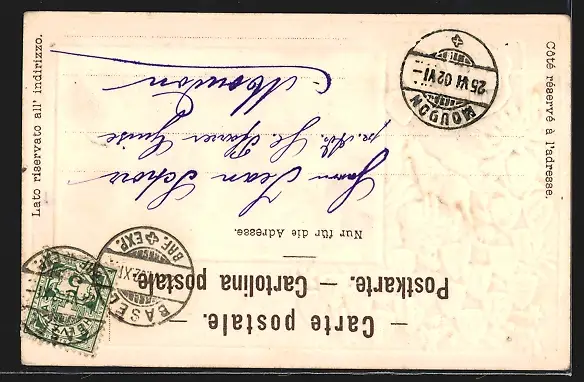 — Carte postale. —
Postkarte. — Cartolina postale.
Nur für die Adresse.
Jean Schor
Moudon
Côté réservé à l'adresse.
Lato riservato all' indirizzo.
BASEL
BRF + EXP.
MOUDON
25 VI 02 VI